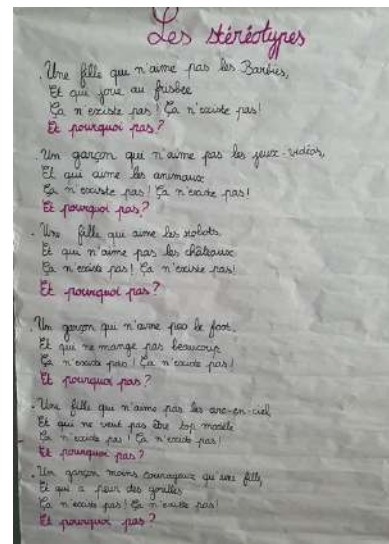 Les stéréotypes
. Une fille qui n'aime pas les Barbies,
Et qui joue au frisbee
Ça n'existe pas ! Ça n'existe pas !
Et pourquoi pas ?
. Un garçon qui n'aime pas les jeux-vidéos,
Et qui aime les animaux
Ça n'existe pas ! Ça n'existe pas !
Et pourquoi pas ?
. Une fille qui aime les robots
Et qui n'aime pas les châteaux
Ça n'existe pas ! Ça n'existe pas !
Et pourquoi pas ?
. Un garçon qui n'aime pas le foot,
Et qui ne mange pas beaucoup
Ça n'existe pas ! Ça n'existe pas !
Et pourquoi pas ?
. Une fille qui n'aime pas les arc-en-ciel,
Et qui ne veut pas être top modèle
Ça n'existe pas ! Ça n'existe pas !
Et pourquoi pas ?
. Un garçon moins courageux qu'une fille,
Et qui a peur des gorilles
Ça n'existe pas ! Ça n'existe pas !
Et pourquoi pas ?